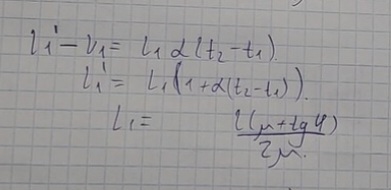 l₁' - l₁ = l₁ α (t₂ - t₁).
l₁' = l₁ (1 + α(t₂ - t₁)).
l₁ = l(μ + tg φ) / 2μ.